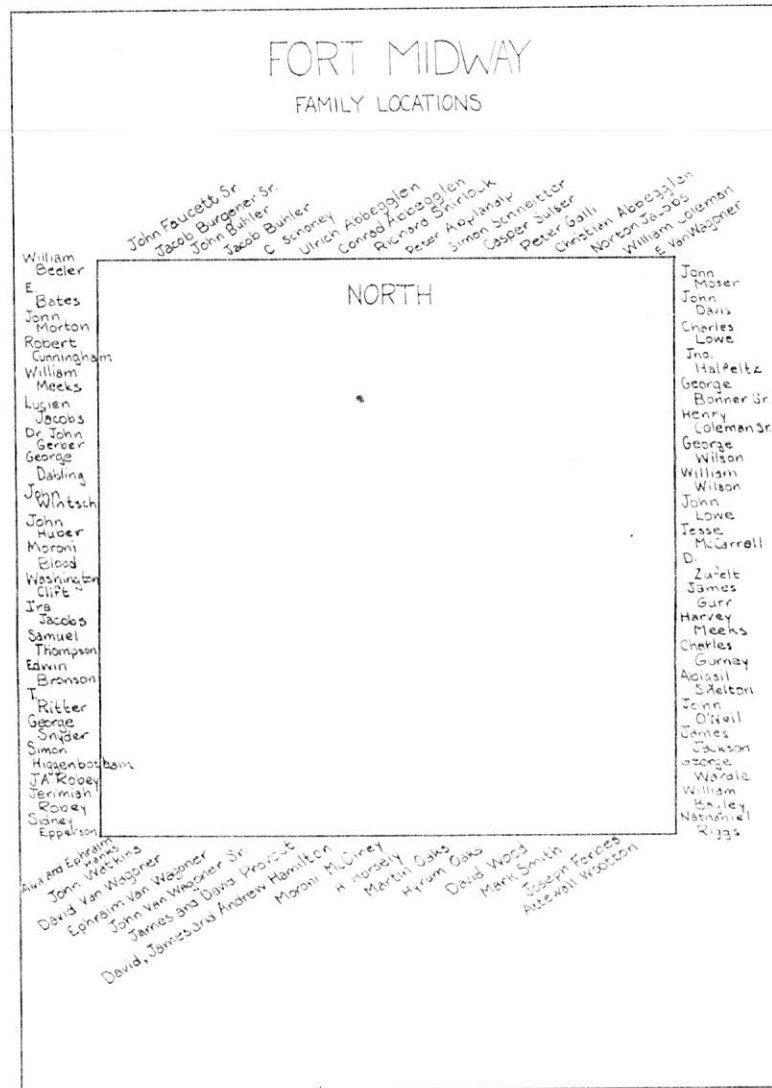 FORT MIDWAY
FAMILY LOCATIONS
John Faucett Sr.
Jacob Burgener Sr.
John Buhler
Jacob Buhler
C Schoney
Ulrich Abbegglen
Conrad Abbegglen
Richard Shirlock
Peter Abplanalp
Simon Schneitter
Casper Sulser
Peter Galli
Christian Abbegglen
Norton Jacobs
William Coleman
E Van Wagoner
NORTH
William
Beeler
E.
Bates
John
Morton
Robert
Cunningham
William
Meeks
Lucien
Jacobs
Dr. John
Gerber
George
Dabling
John
Wintsch
John
Huber
Moroni
Blood
Washington
Clift
Ira
Jacobs
Samuel
Thompson
Edwin
Bronson
T.
Ritter
George
Snyder
Simon
Higgenbotham
J.A. Robey
Jerimiah
Robey
Sidney
Epperson
John
Moser
John
Davis
Charles
Lowe
Jno.
Halfeltz
George
Bonner Sr.
Henry
Coleman Sr.
George
Wilson
William
Wilson
John
Lowe
Jesse
McCarrell
D.
Zufelt
James
Gurr
Harvey
Meeks
Charles
Gurney
Abigail
Skelton
John
O'Neil
James
Jackson
George
Wardle
William
Bagley
Nathaniel
Riggs
Alva and Ephraim
Hanks
John Watkins
David Van Wagoner
Ephraim Van Wagoner
John Van Wagoner Sr.
James and David Provost
David, James and Andrew Hamilton
Moroni McOlney
H Horsely
Martin Oaks
Hyrum Oaks
David Wood
Mark Smith
Joseph Forbes
Attewall Wootton